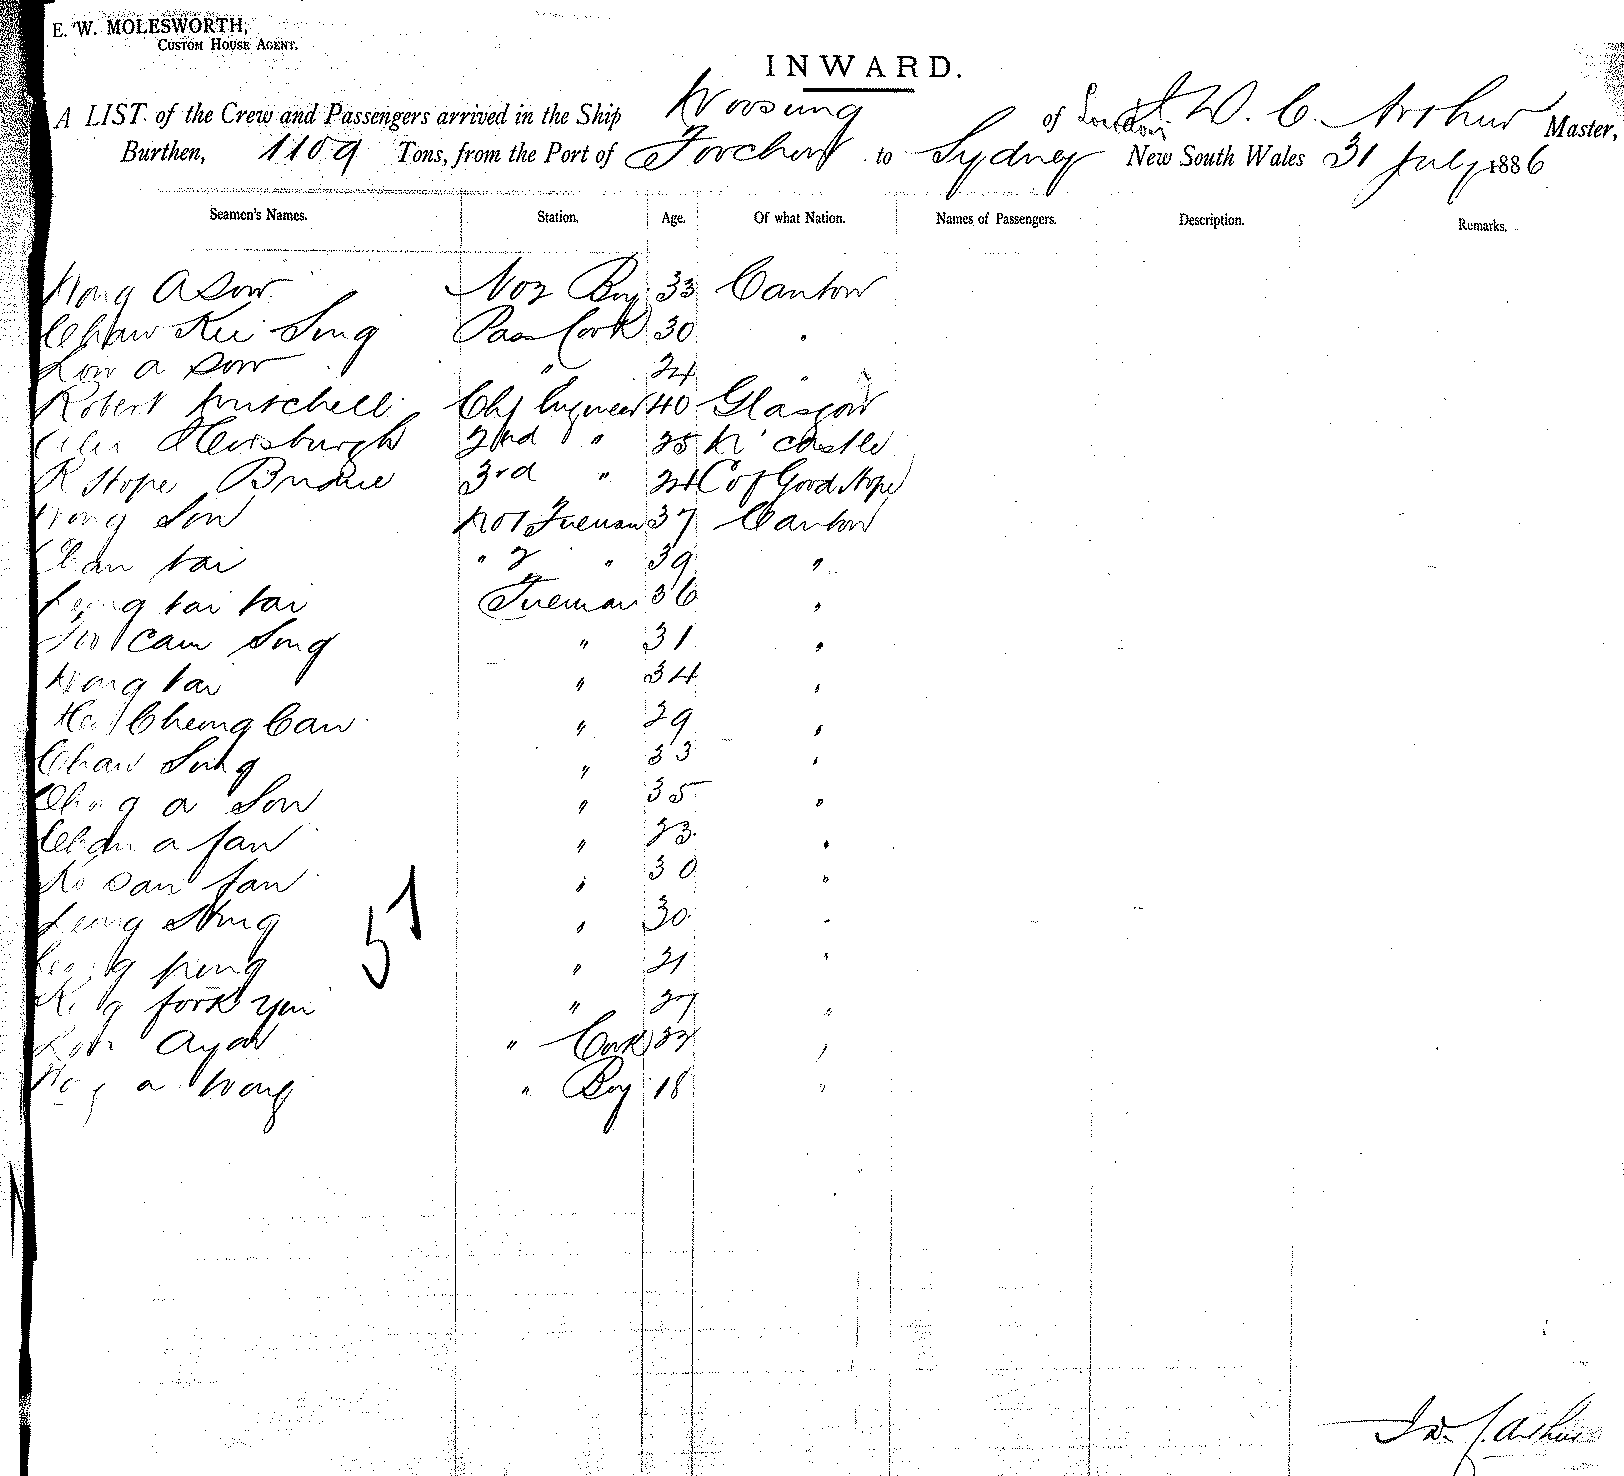 E. W. MOLESWORTH,
CUSTOM HOUSE AGENT.
INWARD.
A LIST of the Crew and Passengers arrived in the Ship Woosung of London J. W. C. Arthur Master,
Burthen, 1109 Tons, from the Port of Foochow to Sydney New South Wales 31 July 1886
Seamen's Names. Station. Age. Of what Nation. Names of Passengers. Description. Remarks.
Wong A Sow No 2 Boy 33 Canton
Chaw Kee Sing Pass Cook 30 "
Low a Sow " 24 "
Robert Mitchell Chf Engineer 40 Glasgow
2nd " 25 N' castle
R Hope 3rd " 24 C of Good Hope
Wong Sow No 1 Fireman 37 Canton
Chan tai " 2 " 39 "
Leong tai tai Fireman 36 "
cam Sing " 31 "
Wong tai " 34 "
Cheong Can " 29 "
Chaw Sing " 33 "
a Sow " 35 "
Chan a fan " 23 "
Ko San fan " 30 "
Leong " 30 "
" 21 "
fork yui " 27 "
Ayow " Cook "
a Wong " Boy 18 "
51
J W C Arthur